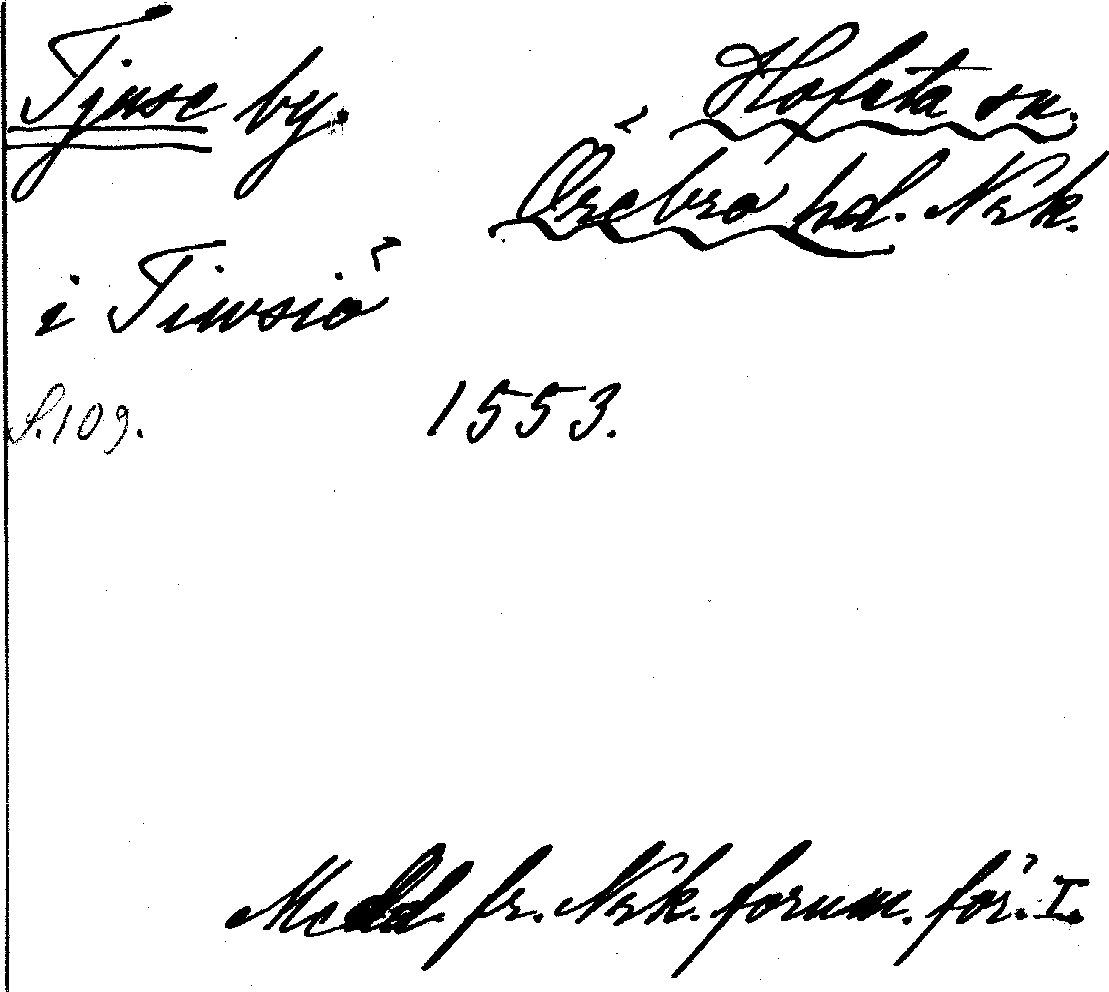 Tjuse by.
Hofsta sn.
Örebro hd. Nrk.
i Tiwsiö
S.109.
1553.
Medd. fr. Nrk. fornm. för. I.